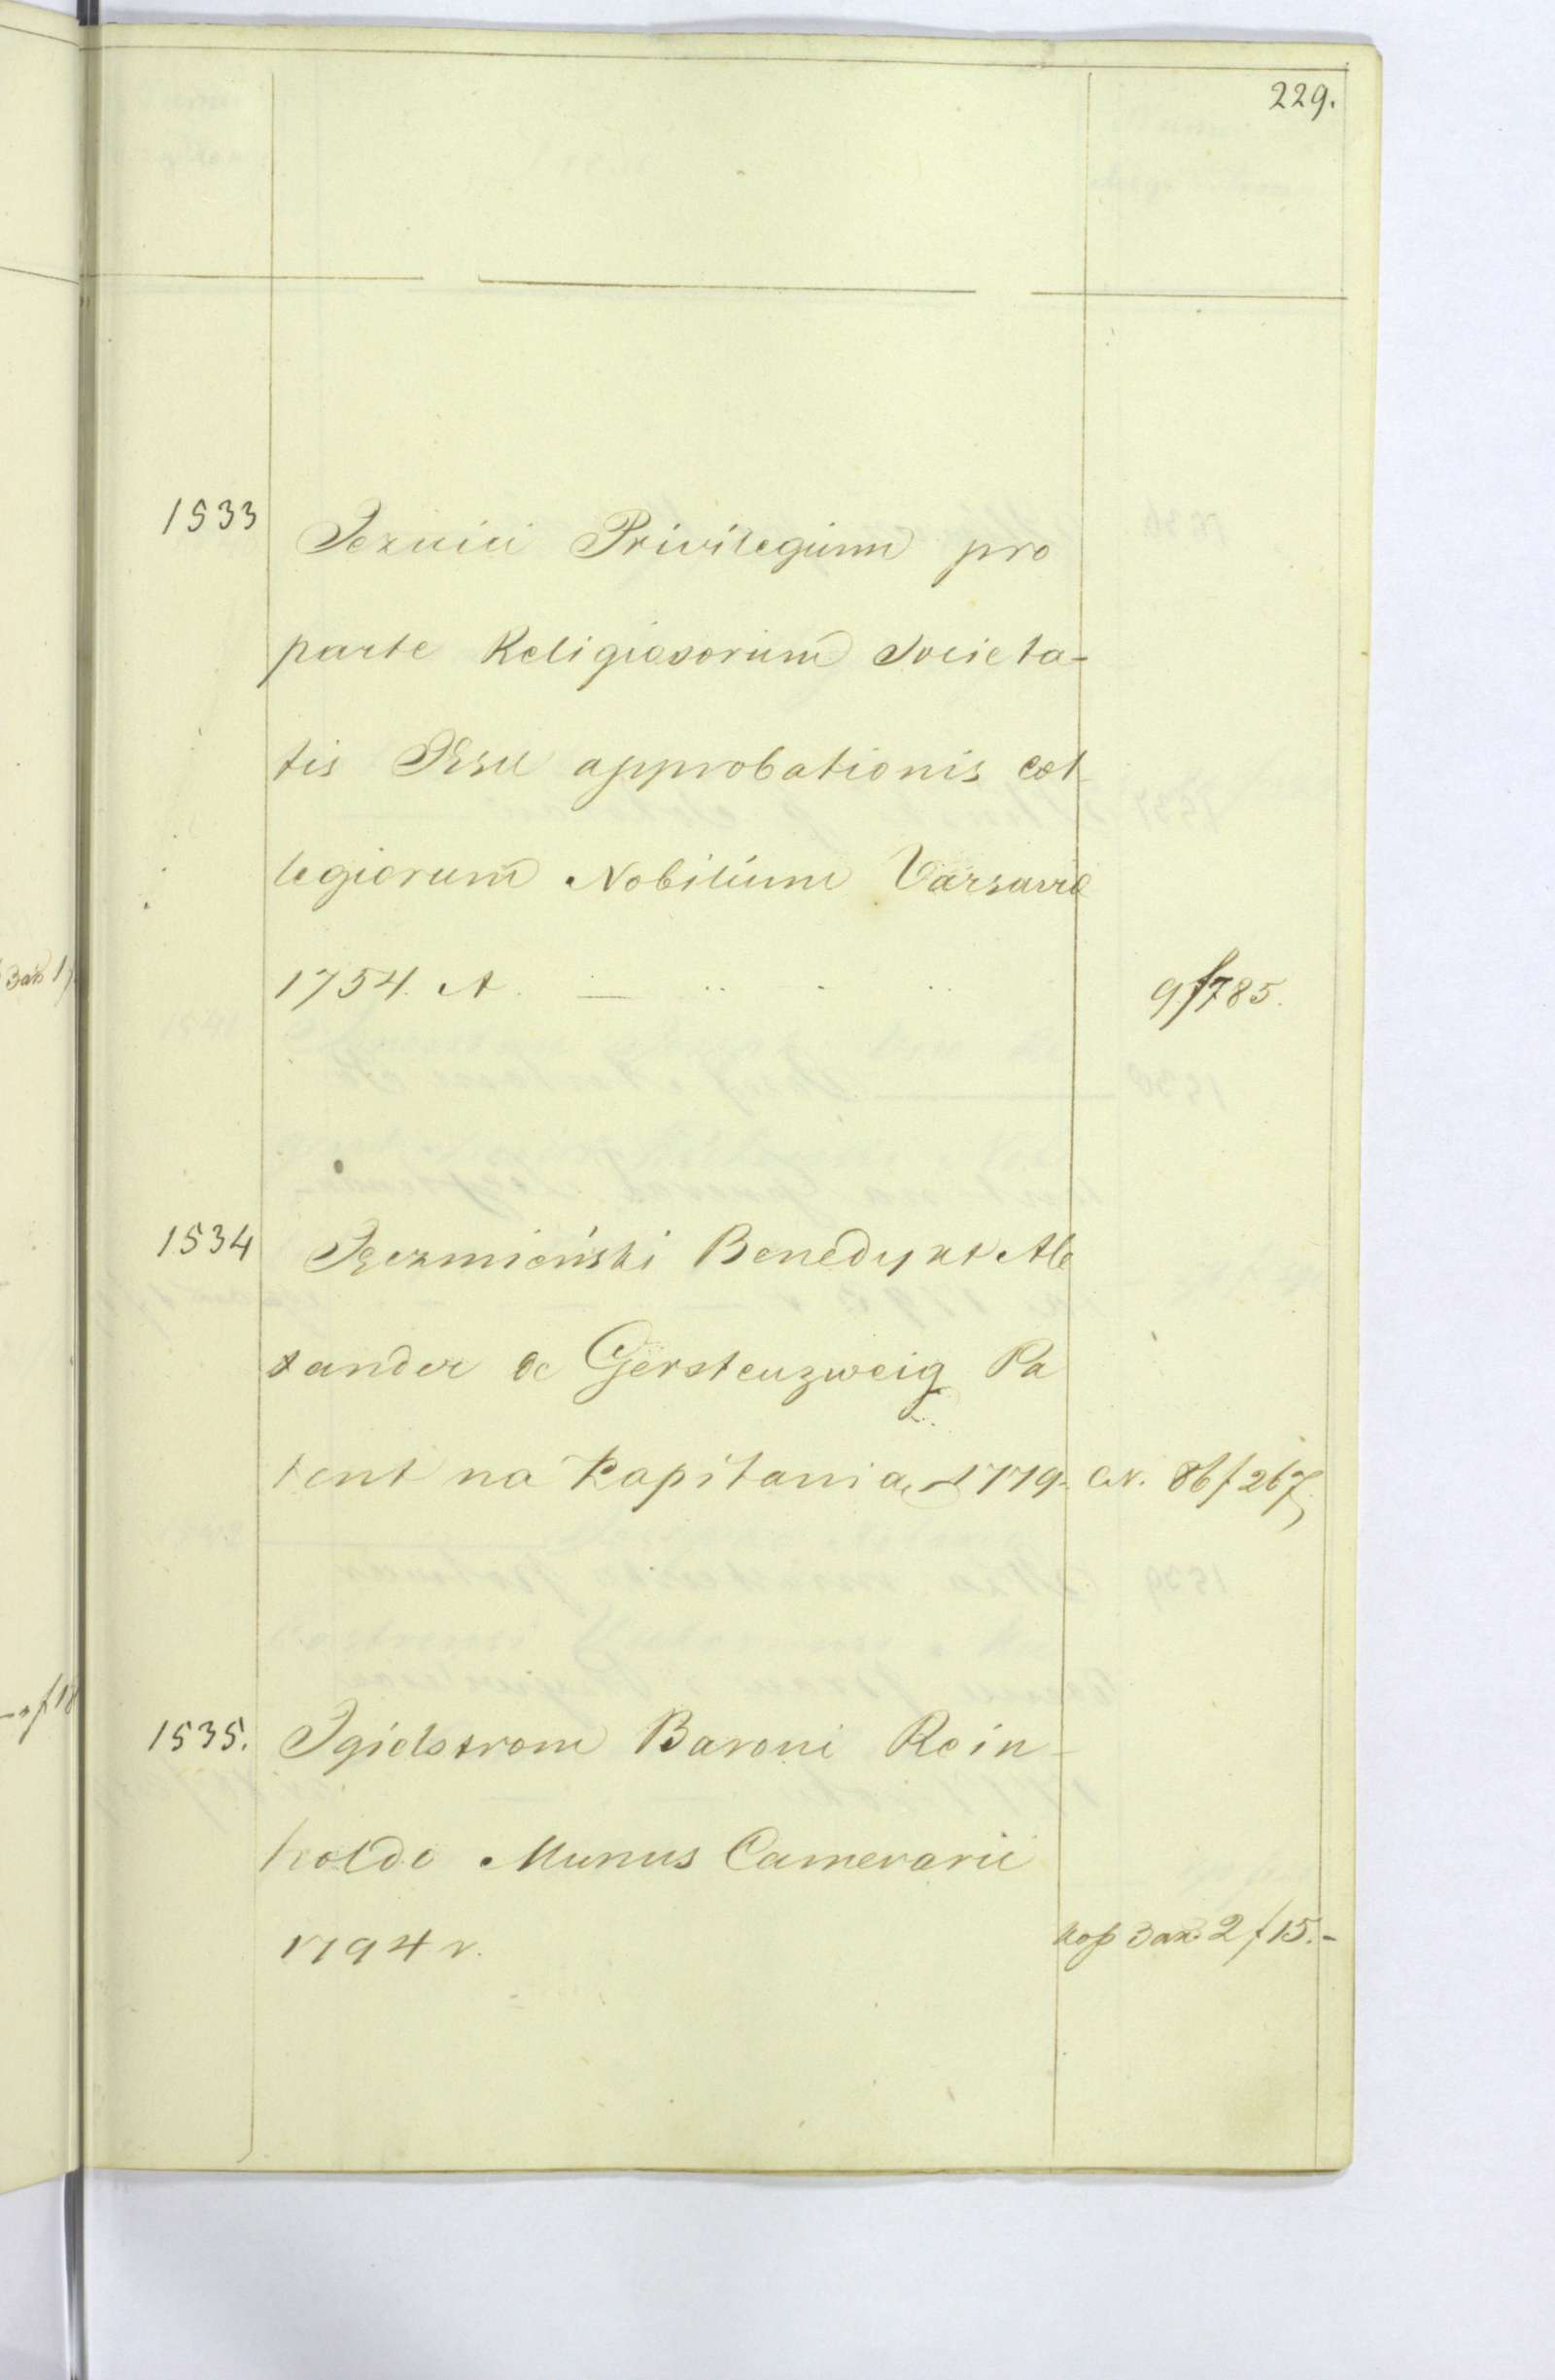 229.
1533 Jezuici Privilegium pro
parte Religiosorum Societa-
tis Jesu approbationis col
legiorum Nobilium Varsavie
1754. A. — 9 f 785.
1534 Jęczmieński Benedykt Ale
xander de Gerstenzweig Pa
tent na Kapitania 1779. 86 f 267
1535. Igielstrom Baroni Rein-
holdo Munus Camerarii
1794 r. 2 f 15.-